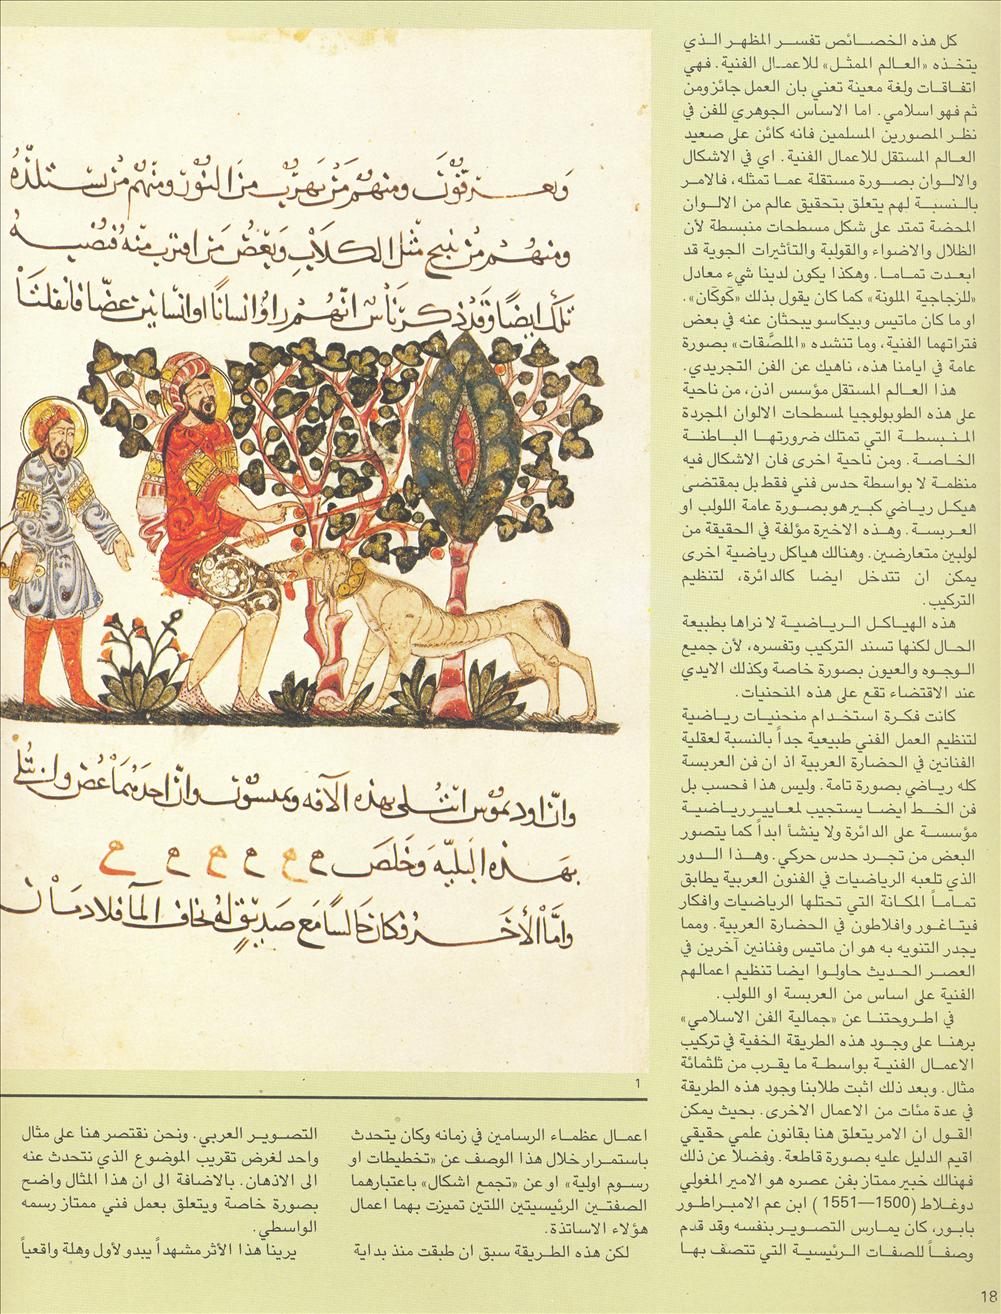 كل هذه الخصائص تفسر المظهر الذي
يتخذه «العالم الممثل» للاعمال الفنية. فهي
اتفاقات ولغة معينة تعني بان العمل جائز ومن
ثم فهو اسلامي. اما الاساس الجوهري للفن في
نظر المصورين المسلمين فانه كائن على صعيد
العالم المستقل للاعمال الفنية. اي في الاشكال
والالوان بصورة مستقلة عما تمثله، فالامر
بالنسبة لهم يتعلق بتحقيق عالم من الالوان
المحضة تمتد على شكل مسطحات منبسطة لأن
الظلال والاضواء والقولبة والتأثيرات الجوية قد
ابعدت تماما. وهكذا يكون لدينا شيء معادل
«للزجاجية الملونة» كما كان يقول بذلك «كوكان».
او ما كان ماتيس وبيكاسو يبحثان عنه في بعض
فتراتهما الفنية، وما تنشده «الملصّقات» بصورة
عامة في ايامنا هذه، ناهيك عن الفن التجريدي.
هذا العالم المستقل مؤسس اذن، من ناحية
على هذه الطوبولوجيا لمسطحات الالوان المجردة
المنبسطة التي تمتلك ضرورتها الباطنة
الخاصة. ومن ناحية اخرى فان الاشكال فيه
منظمة لا بواسطة حدس فني فقط بل بمقتضى
هيكل رياضي كبير هو بصورة عامة اللولب او
العربسة. وهذه الاخيرة مؤلفة في الحقيقة من
لولبين متعارضين. وهنالك هياكل رياضية اخرى
يمكن ان تتدخل ايضا كالدائرة، لتنظيم
التركيب.
هذه الهياكل الرياضية لا نراها بطبيعة
الحال لكنها تسند التركيب وتفسره، لأن جميع
الوجوه والعيون بصورة خاصة وكذلك الايدي
عند الاقتضاء تقع على هذه المنحنيات.
كانت فكرة استخدام منحنيات رياضية
لتنظيم العمل الفني طبيعية جداً بالنسبة لعقلية
الفنانين في الحضارة العربية اذ ان فن العربسة
كله رياضي بصورة تامة. وليس هذا فحسب بل
فن الخط ايضا يستجيب لمعايير رياضية
مؤسسة على الدائرة ولا ينشأ ابداً كما يتصور
البعض من تجرد حدس حركي. وهذا الدور
الذي تلعبه الرياضيات في الفنون العربية يطابق
تماماً المكانة التي تحتلها الرياضيات وافكار
فيثاغور وافلاطون في الحضارة العربية. ومما
يجدر التنويه به هو ان ماتيس وفنانين آخرين في
العصر الحديث حاولوا ايضا تنظيم اعمالهم
الفنية على اساس من العربسة او اللولب.
في اطروحتنا عن «جمالية الفن الاسلامي»
برهنا على وجود هذه الطريقة الخفية في تركيب
الاعمال الفنية بواسطة ما يقرب من ثلثمائة
مثال. وبعد ذلك اثبت طلابنا وجود هذه الطريقة
في عدة مئات من الاعمال الاخرى. بحيث يمكن
القول ان الامر يتعلق هنا بقانون علمي حقيقي
اقيم الدليل عليه بصورة قاطعة. وفضلاً عن ذلك
فهنالك خبير ممتاز بفن عصره هو الامير المغولي
دوغلاط (1500—1551) ابن عم الامبراطور
بابور، كان يمارس التصوير بنفسه وقد قدم
وصفاً للصفات الرئيسية التي تتصف بها
ومنهم من يهرب من النور ومنهم من يستلذه
ومنهم من ينبح مثل الكلاب وبعض من اقترب منه
تلك ايضا وقد ذكر ناس انهم راوا انسانا او انسانين عضا فانفلتا
بهذه البليه وخلص
واما الآخر فكان جالسا مع صديق له
1
اعمال عظماء الرسامين في زمانه وكان يتحدث
باستمرار خلال هذا الوصف عن «تخطيطات او
رسوم اولية» او عن «تجمع اشكال» باعتبارهما
الصفتين الرئيسيتين اللتين تميزت بهما اعمال
هؤلاء الاساتذة.
لكن هذه الطريقة سبق ان طبقت منذ بداية
التصوير العربي. ونحن نقتصر هنا على مثال
واحد لغرض تقريب الموضوع الذي نتحدث عنه
الى الاذهان. بالاضافة الى ان هذا المثال واضح
بصورة خاصة ويتعلق بعمل فني ممتاز رسمه
الواسطي.
يرينا هذا الأثر مشهداً يبدو لأول وهلة واقعياً
18